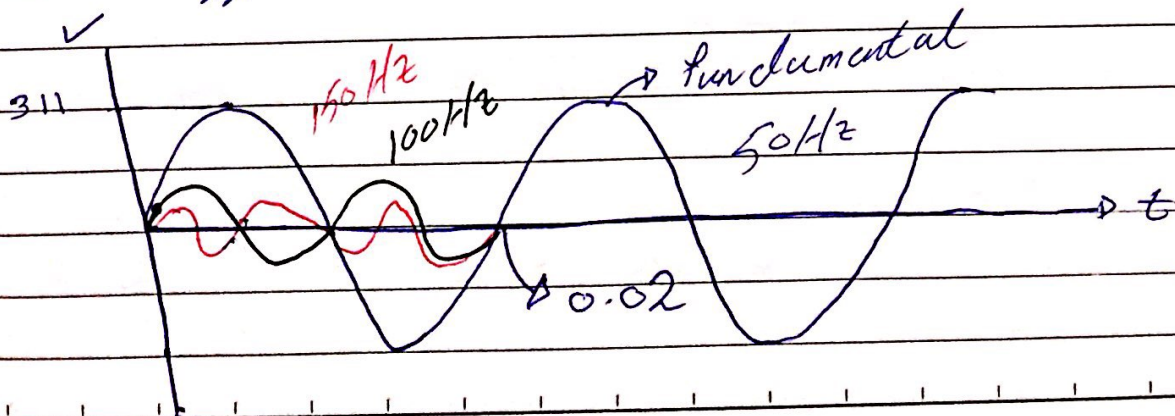 V
311
150Hz
100Hz
fundamental
50Hz
t
0.02